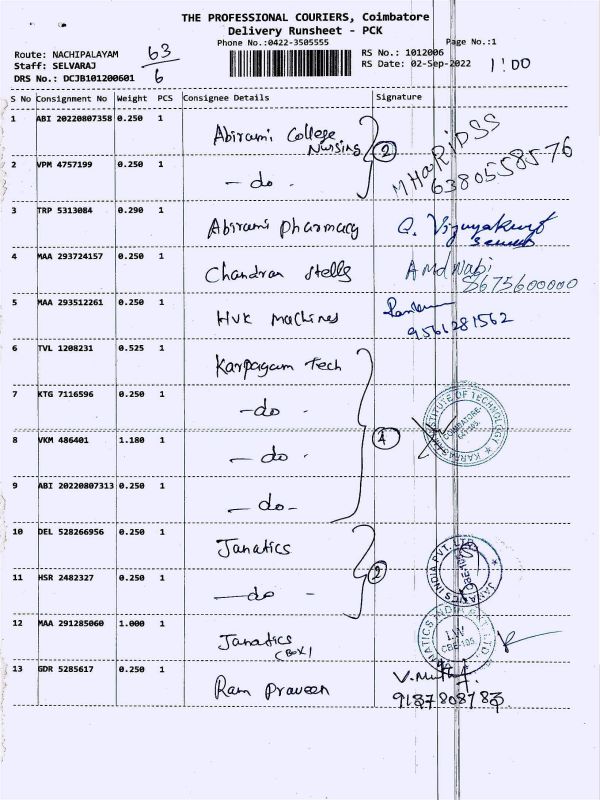 THE PROFESSIONAL COURIERS, Coimbatore
Delivery Runsheet - PCK
Phone No.:0422-3505555 Page No.:1
Route: NACHIPALAYAM 63 RS No.: 1012006
Staff: SELVARAJ RS Date: 02-Sep-2022 1:00
DRS No.: DCJB101200601 6
S No Consignment No Weight PCS Consignee Details Signature
1 ABI 20220807358 0.250 1 Abirami College
Nursing 2 MHaRiDSS
2 VPM 4757199 0.250 1 - do - 6380558576
3 TRP 5313084 0.290 1 Abirami pharmacy
4 MAA 293724157 0.250 1 Chandran stells A Md Nabi
8675600000
5 MAA 293512261 0.250 1 HVK Machines
9561281562
6 TVL 1208231 0.525 1 Karpagam Tech
7 KTG 7116596 0.250 1 - do - INSTITUTE OF TECHNOLOGY
8 VKM 486401 1.180 1 - do - 4 COIMBATORE-
9 ABI 20220807313 0.250 1 - do -
10 DEL 528266956 0.250 1 Janatics
2 JANATICS INDIA PVT. LTD.
11 HSR 2482327 0.250 1 - do - CBE-105
12 MAA 291285060 1.000 1 Janatics
(BOX) CBE-105
13 GDR 5285617 0.250 1 Ram Praveen